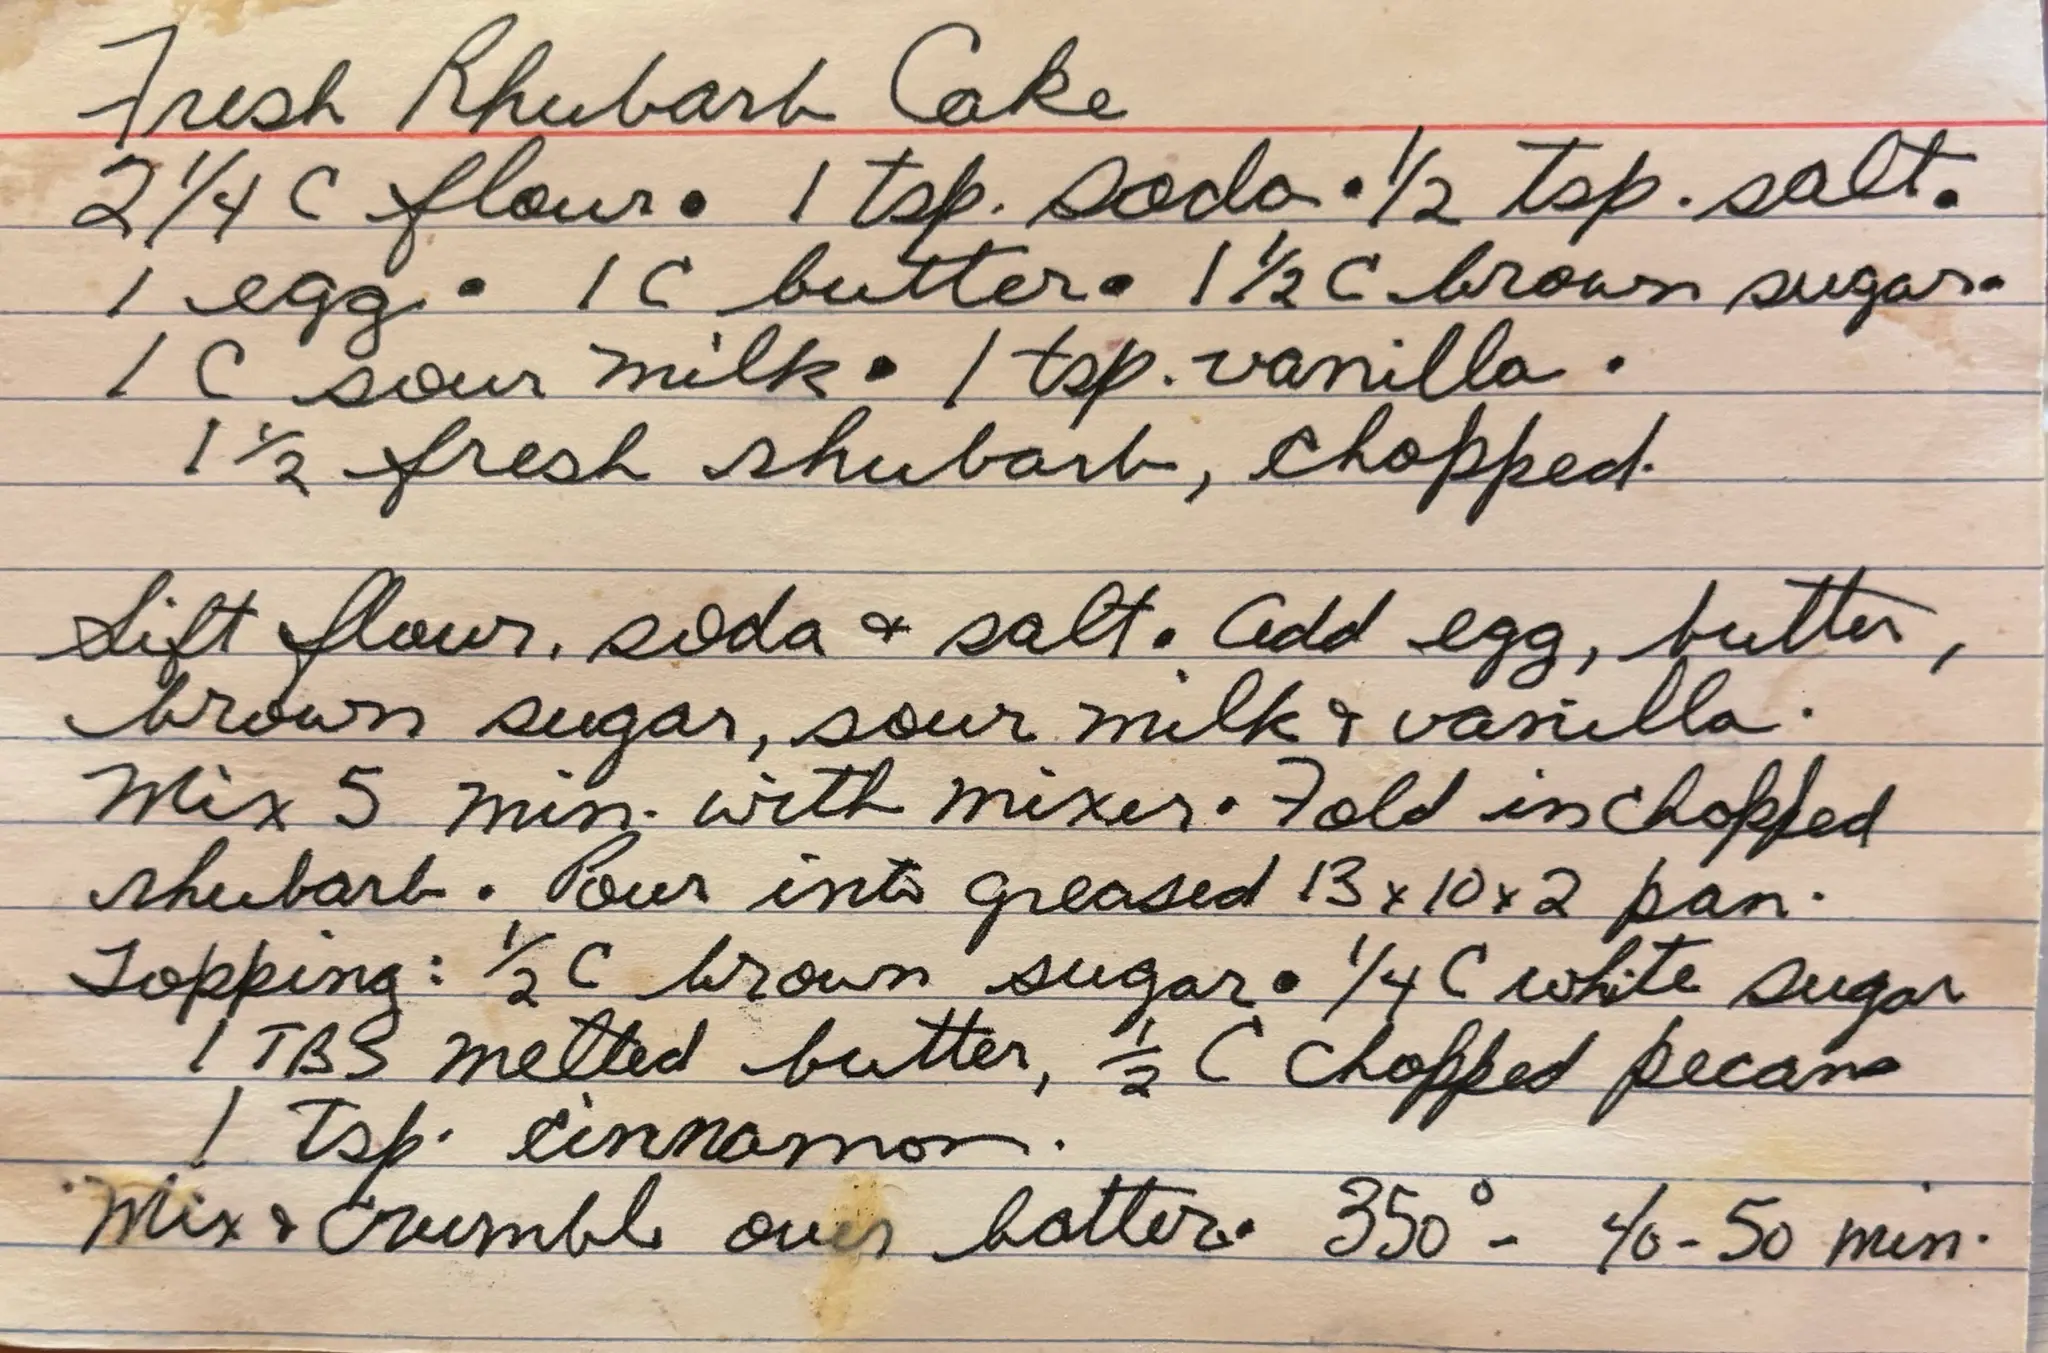 Fresh Rhubarb Cake
2 1/4 C flour • 1 tsp. soda • 1/2 tsp. salt •
1 egg • 1 C butter • 1 1/2 C brown sugar •
1 C sour milk • 1 tsp. vanilla •
1 1/2 fresh rhubarb, chopped.
Sift flour, soda & salt. Add egg, butter,
brown sugar, sour milk & vanilla.
Mix 5 min. with mixer. Fold in chopped
rhubarb. Pour into greased 13 x 10 x 2 pan.
Topping: 1/2 C brown sugar • 1/4 C white sugar
1 TBS melted butter, 1/2 C chopped pecans
1 tsp. cinnamon.
Mix & crumble over batter. 350° - 40-50 min.